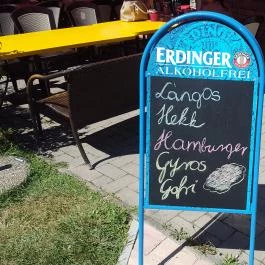 ERDINGER
ALKOHOLFREI
Làngos
Hekk
Hamburger
Gyros
Gofri